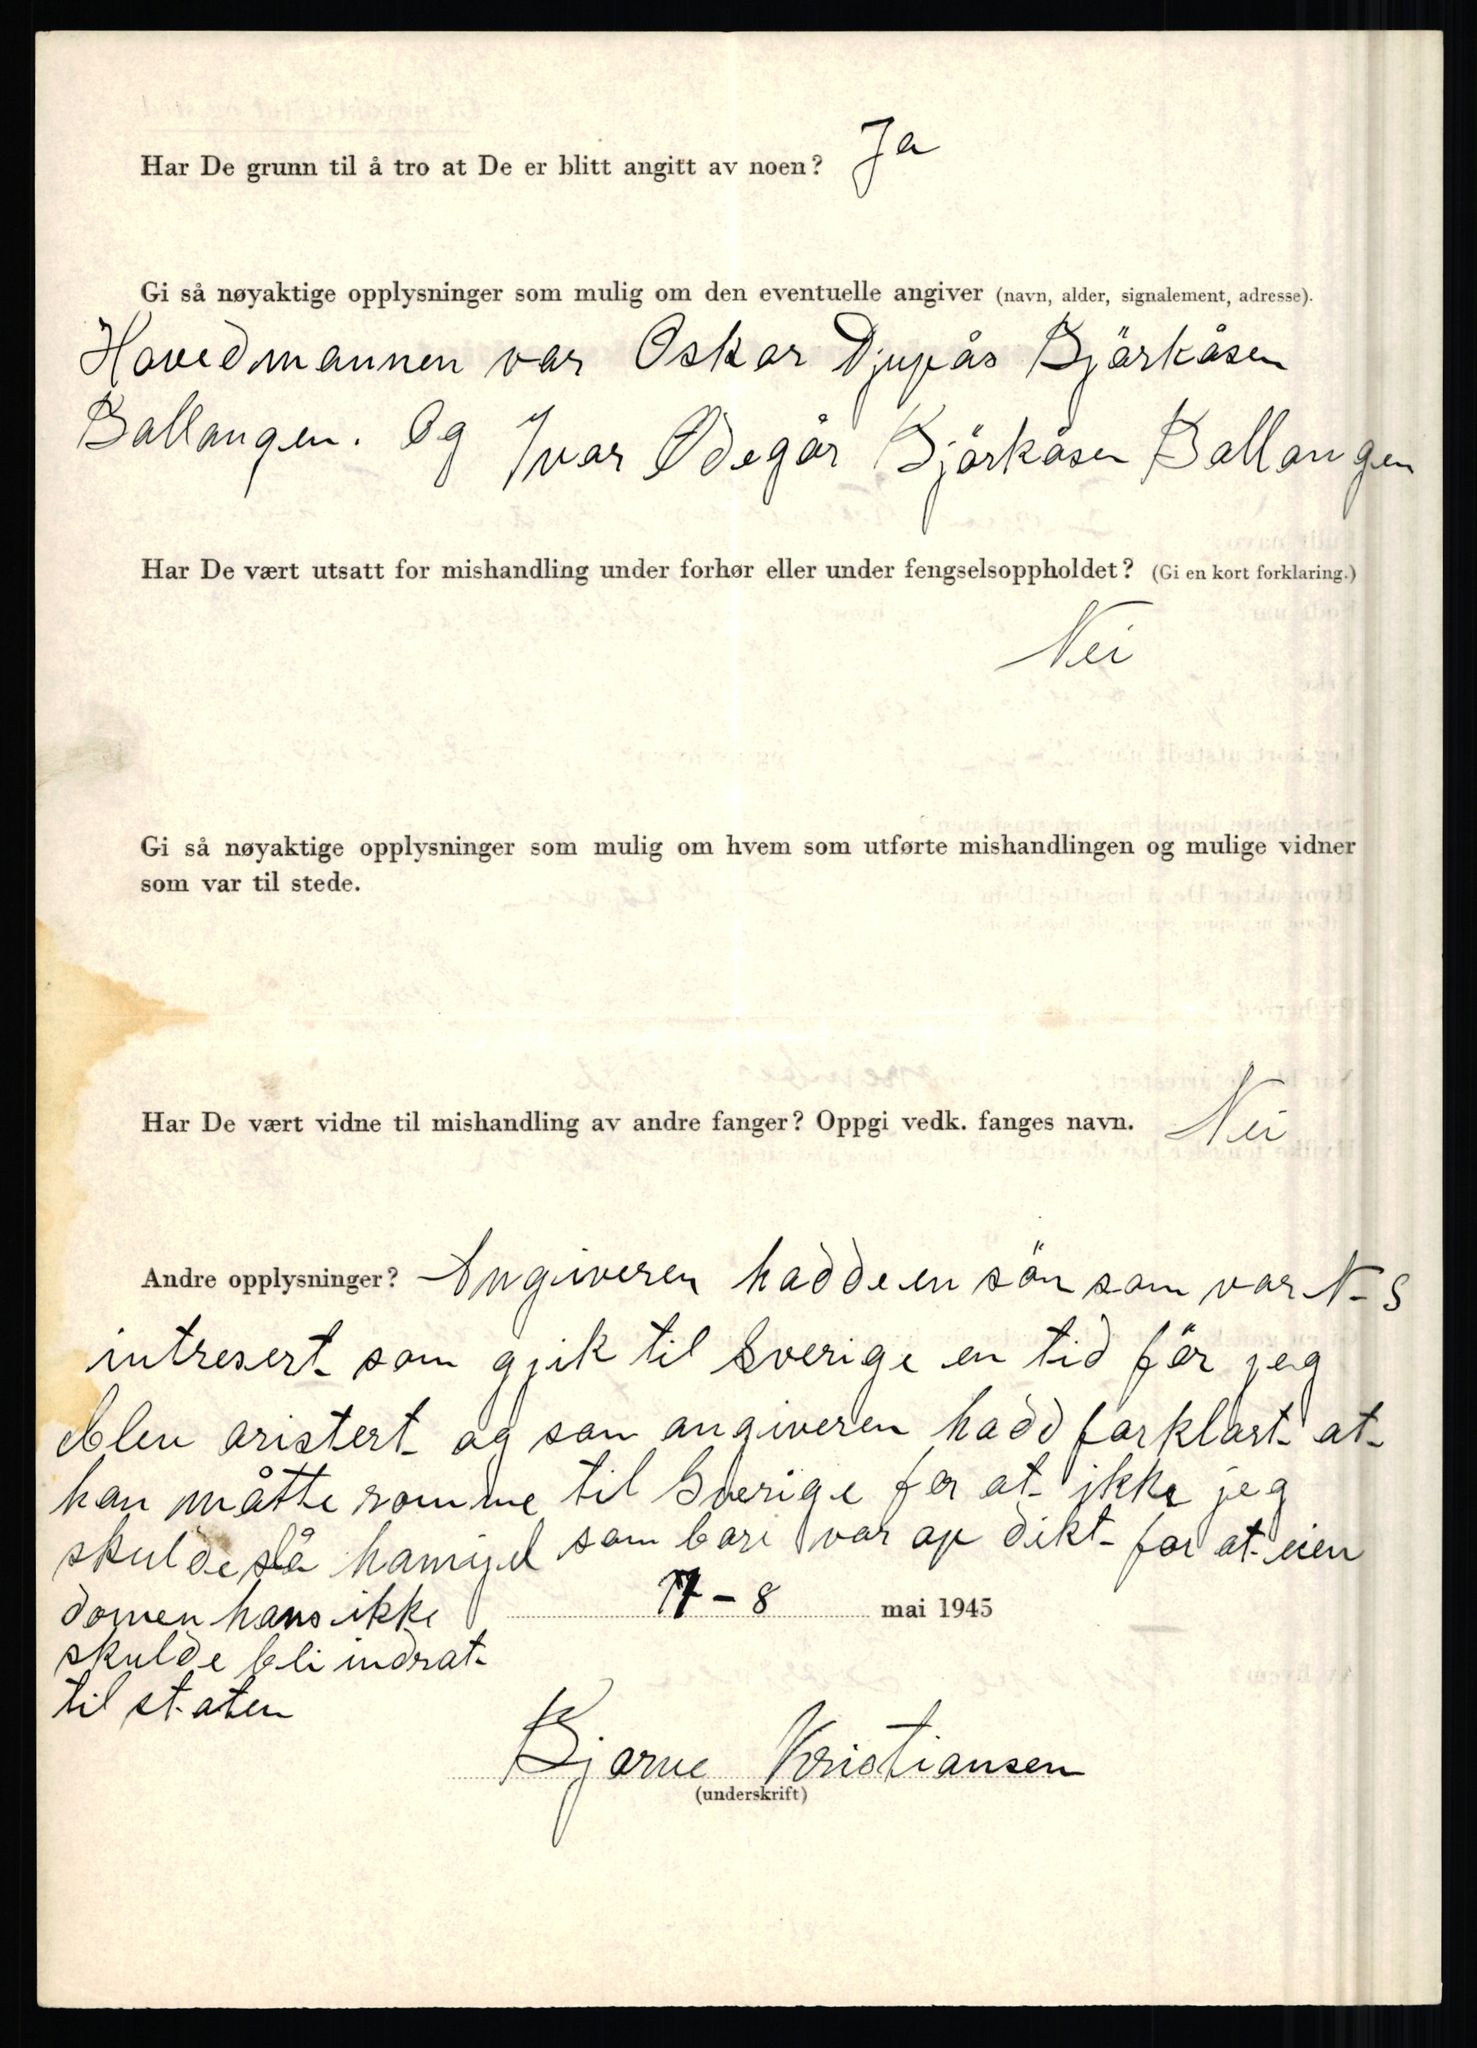 Har De grunn til å tro at De er blitt angitt av noen? Ja
Gi så nøyaktige opplysninger som mulig om den eventuelle angiver (navn, alder, signalement, adresse).
Hovedmannen var Oskar Djupås Bjärkåsen
Ballangen. Og Ivar Ødegår Bjärkåsen Ballangen
Har De vært utsatt for mishandling under forhør eller under fengselsoppholdet? (Gi en kort forklaring.)
Nei
Gi så nøyaktige opplysninger som mulig om hvem som utførte mishandlingen og mulige vidner
som var til stede.
Har De vært vidne til mishandling av andre fanger? Oppgi vedk. fanges navn. Nei
Andre opplysninger? Angiveren hadde en sön som var N-S
intresert som gjik til Sverige en tid för jeg
blev aristert og som angiveren hadd forklart at
han måtte romme til Sverige for at ikke jeg
skulde slå ham ijel som bare var op dikt for at eien
domen hans ikke
skulde bli indrat
til staten
17-8 mai 1945
Bjarne Kristiansen
(underskrift)